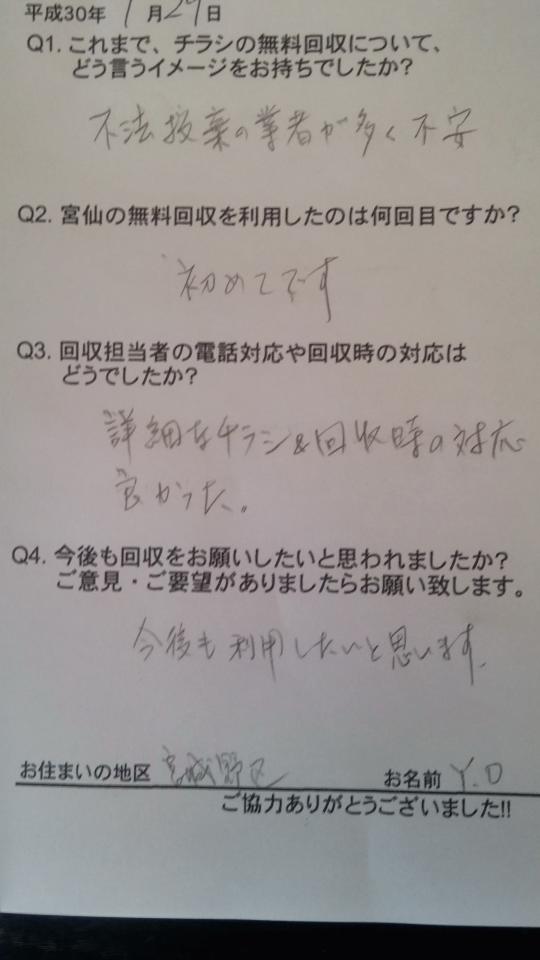 平成30年 1月29日
Q1. これまで、チラシの無料回収について、
どう言うイメージをお持ちでしたか?
不法投棄の業者が多く不安
Q2. 宮仙の無料回収を利用したのは何回目ですか?
初めてです
Q3. 回収担当者の電話対応や回収時の対応は
どうでしたか?
詳細なチラシ&回収時の対応
良かった。
Q4. 今後も回収をお願いしたいと思われましたか?
ご意見・ご要望がありましたらお願い致します。
今後も利用したいと思います。
お住まいの地区 宮城野区 お名前 Y.O
ご協力ありがとうございました!!